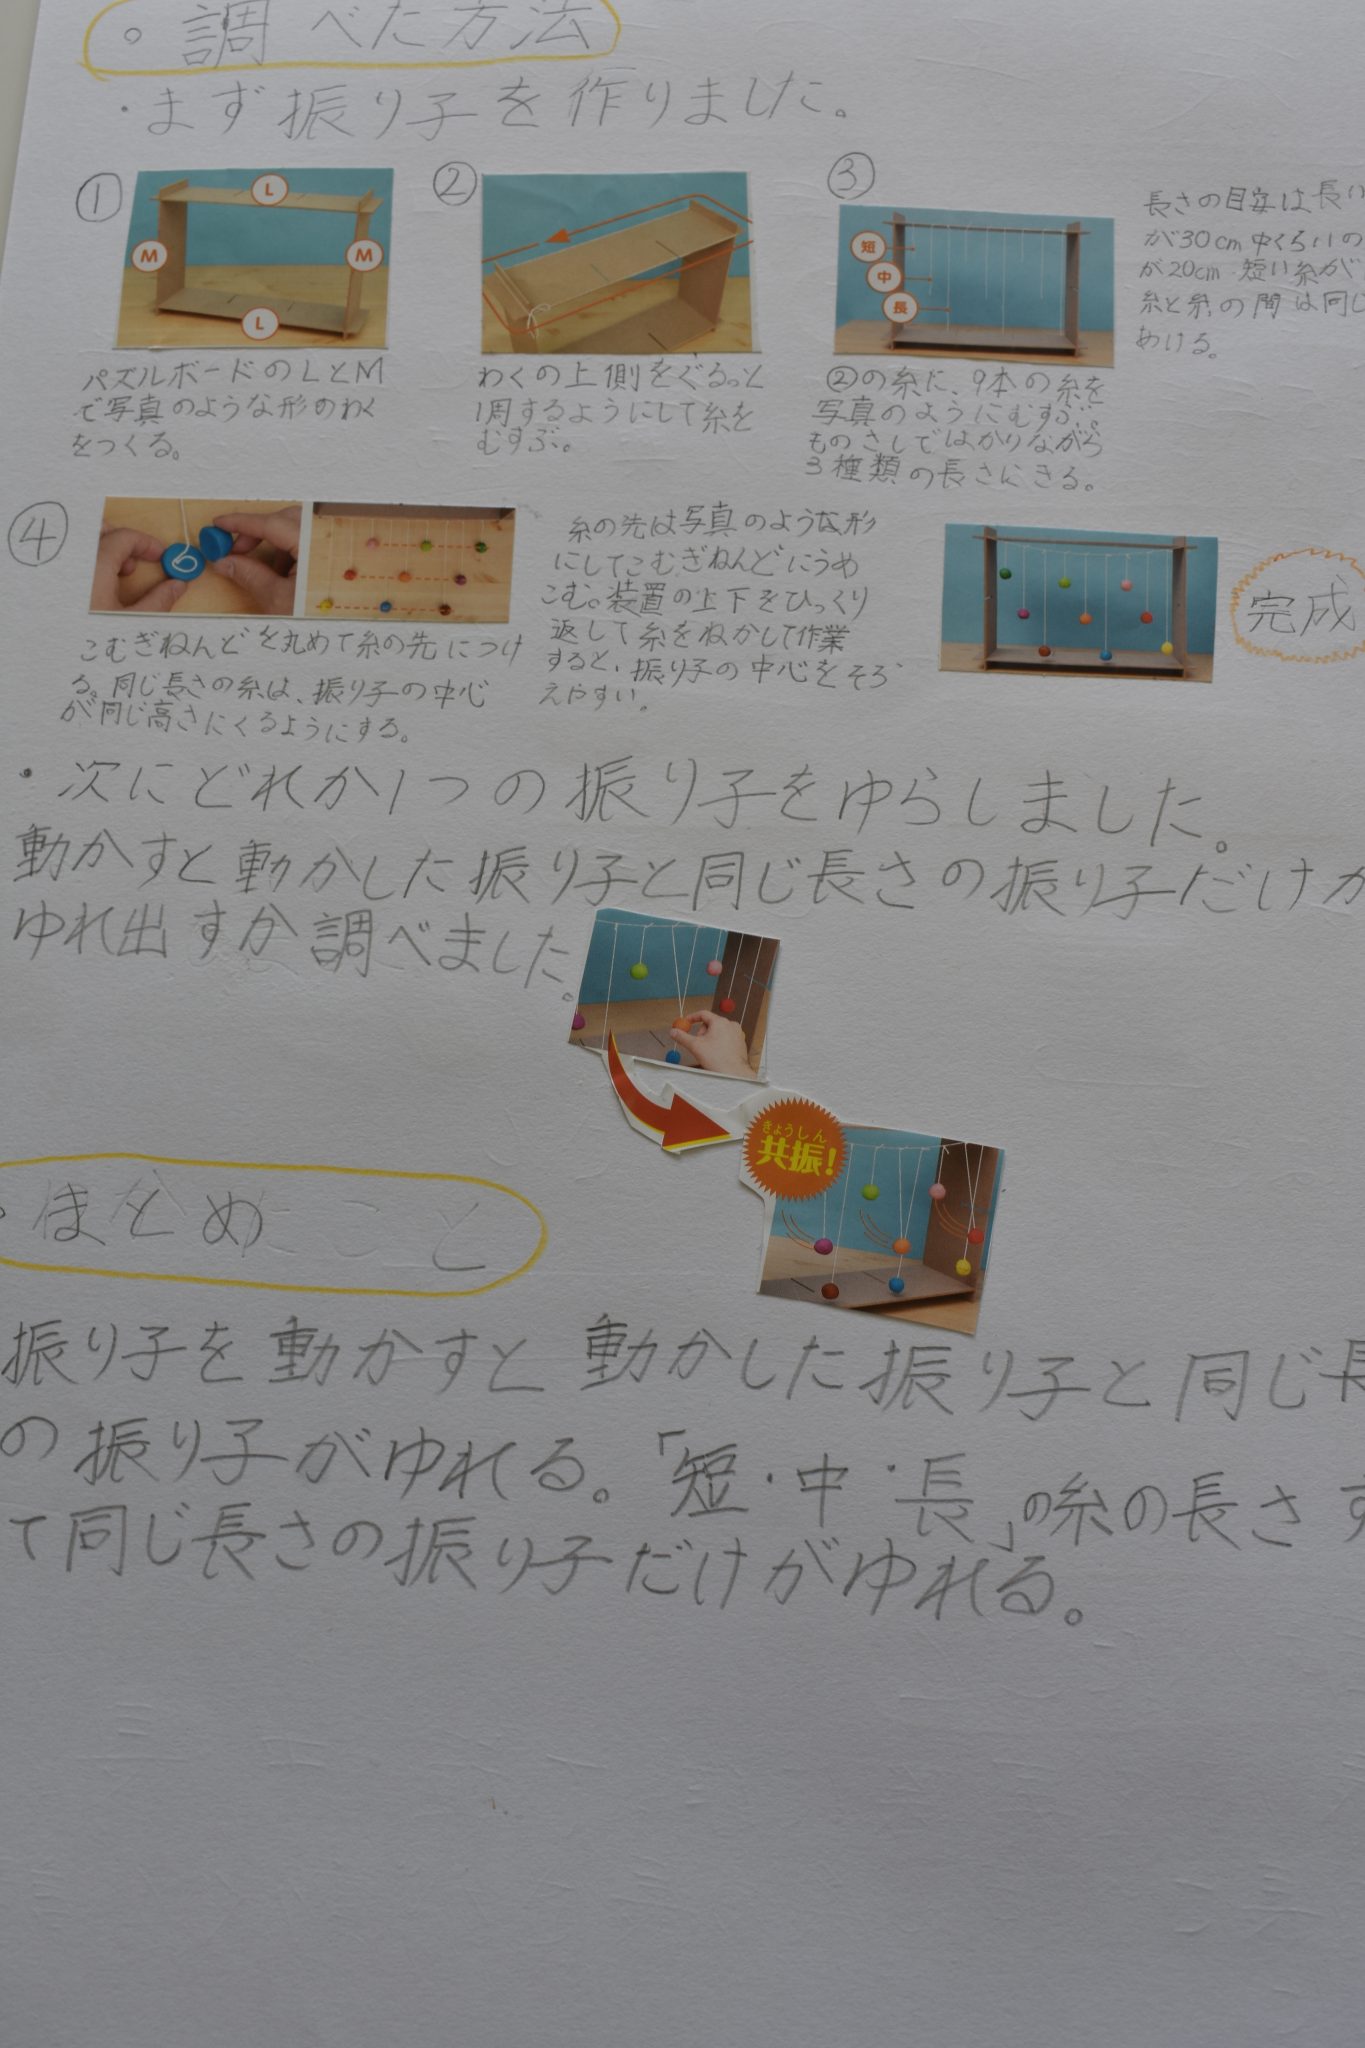 。調べた方法
・まず振り子を作りました。
①
L
M
M
L
パズルボードのLとM
で写真のような形のわく
をつくる。
②
わくの上側をぐるっと
1周するようにして糸を
むすぶ。
③
短
中
長
②の糸に、9本の糸を
写真のようにむすぶ。
ものさしではかりながら
3種類の長さにきる。
長さの目安は長い
が30cm中くらいの
が20cm 短い糸が
糸と糸の間は同じ
あける。
④
こむぎねんどを丸めて糸の先につけ
る。同じ長さの糸は、振り子の中心
が同じ高さにくるようにする。
糸の先は写真のような形
にしてこむぎねんどにうめ
こむ。装置の上下をひっくり
返して糸をねかして作業
すると、振り子の中心をそろ
えやすい。
完成
・次にどれか1つの振り子をゆらしました。
動かすと動かした振り子と同じ長さの振り子だけが
ゆれ出すか調べました。
きょうしん
共振!
まとめ
振り子を動かすと動かした振り子と同じ長
の振り子がゆれる。「短・中・長」の糸の長さす
て同じ長さの振り子だけがゆれる。